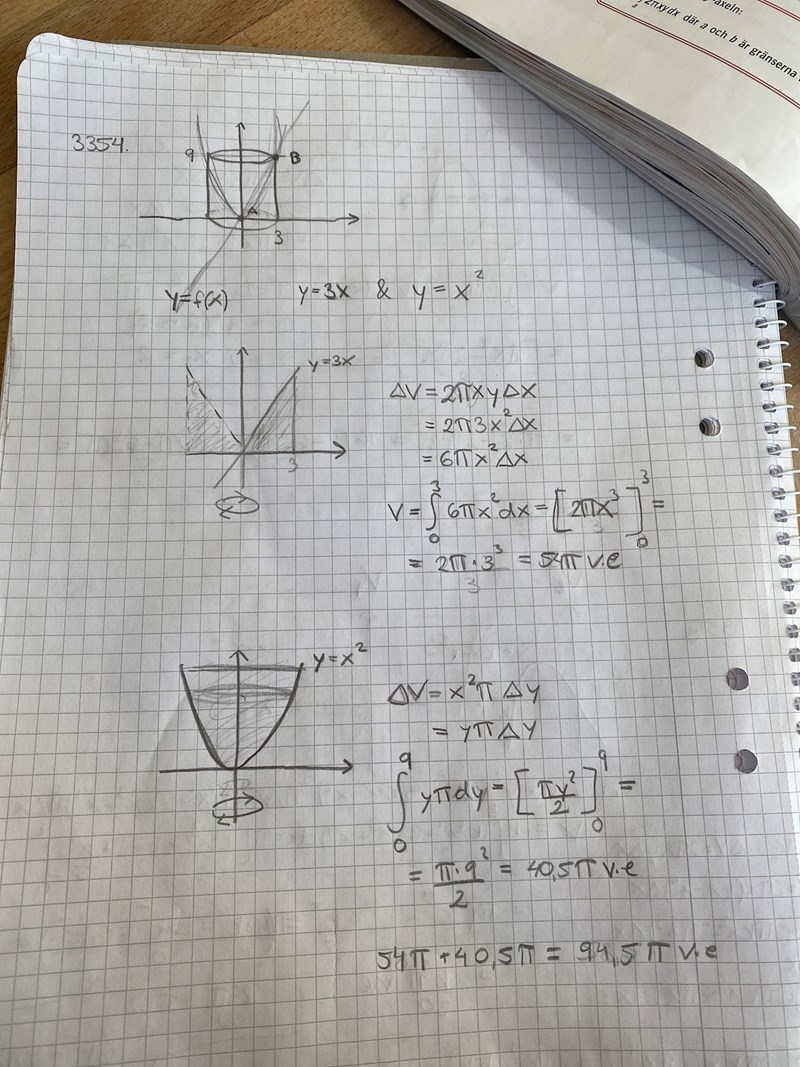 -axeln:
2πxydx där a och b är gränserna
3354.
9
B
A
3
y=f(x) y=3x & y=x²
y=3x
3
ΔV=2πxyΔx
=2π3x²Δx
=6πx²Δx
V=∫₀³ 6πx²dx=[2πx³]₀³=
=2π·3³=54πv.e
3
y=x²
ΔV=x²πΔy
=yπΔy
∫₀⁹ yπdy=[πy²/2]₀⁹=
=π·9²/2=40,5πv.e
54π+40,5π=94,5πv.e